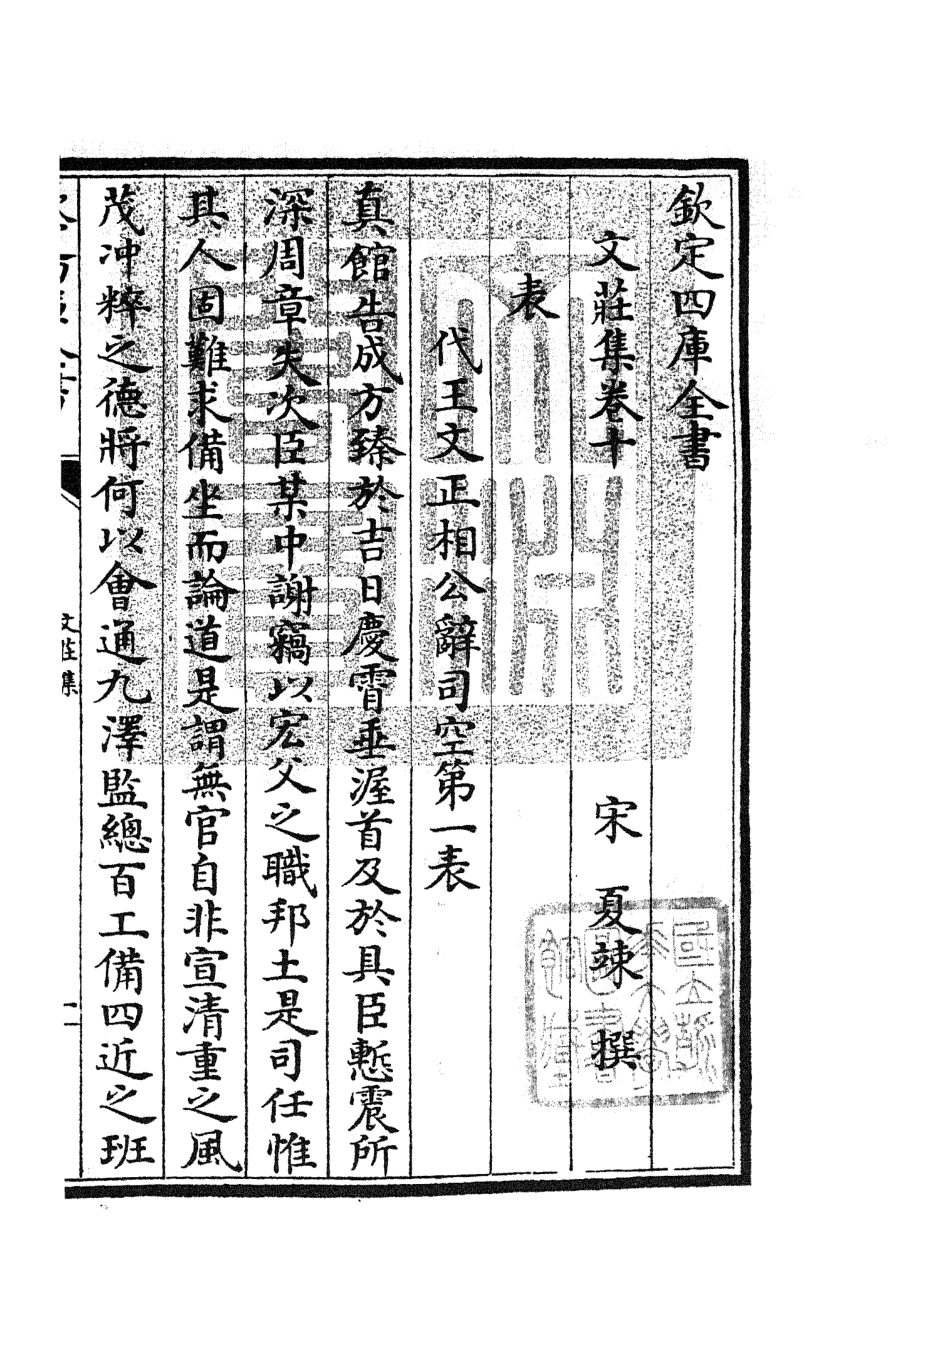 欽定四庫全書
文莊集卷十 宋 夏竦 撰
表
代王文正相公辭司空第一表
真館告成方臻於吉日慶霄垂渥首及於具臣慙震所
深周章失次臣某中謝竊以宏父之職邦土是司任惟
其人固難求備坐而論道是謂無官自非宣清重之風
茂冲粹之德將何以會通九澤監總百工備四近之班
文莊集
一